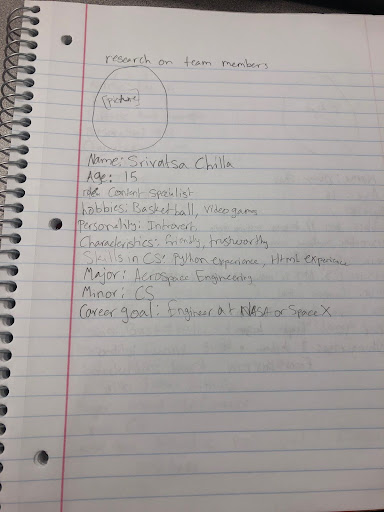 research on team members
[picture]
Name: Srivatsa Chilla
Age: 15
role: Content Specialist
hobbies: Basketball, videogames
Personality: Introvert
Characteristics: friendly, trustworthy
Skills in CS: Python experience, Html experience
Major: Aerospace Engineering
Minor: CS
Career goal: Engineer at NASA or Space X